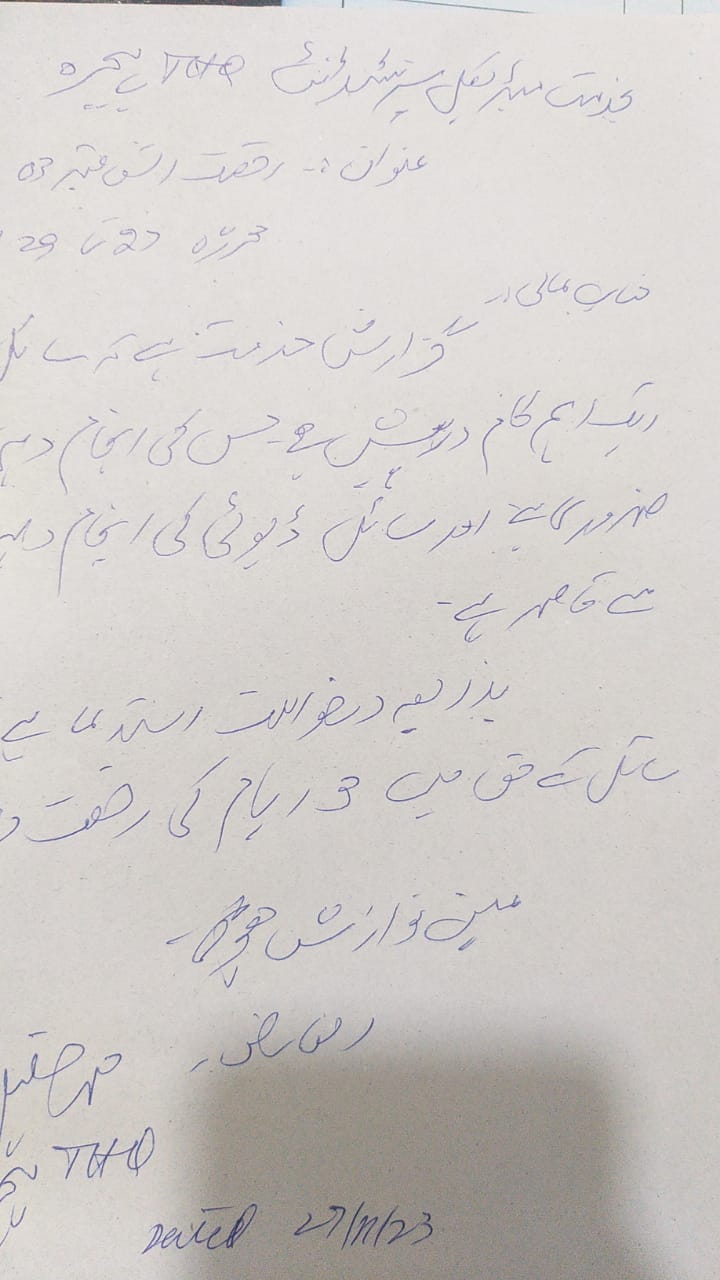 بخدمت میڈیکل سپرنٹنڈنٹ THQ
عنوان :- رخصت اتفاقیہ 03
محررہ 27 تا 29
جناب عالی :-
گزارش خدمت ہے کہ سائل
ایک اہم کام درپیش ہے۔ جس کی انجام
ضروری ہے اور سائل ڈیوٹی کی انجام
سے قاصر ہے۔
بذریعہ درخواست استدعا ہے
سائل کے حق میں 3 ایام کی رخصت
عین نوازش ہوگی۔
العارض۔
THQ
Dated 27/11/23